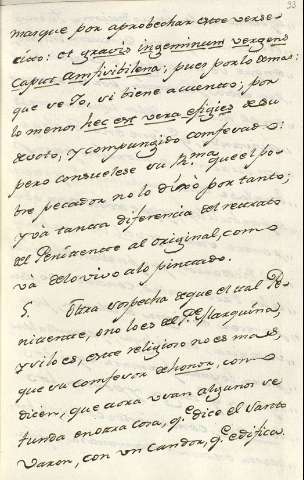 33
masque por aprobechar este verse-
cito: et gravis ingeminum vergens
caput amfivitilena; pues por lo demas:
que ve Yo, vi biene a cuento; por
lo menos hec est vera efigies de su
devoto, y compungido comfesado:
pero consuelese su Rma. que el po-
bre pecador no lo dixo por tanto;
y và tanta diferencia del retrato
del Penitente al original, como
và delo vivo alo pintado.
5. Otra sospecha de que el tal Pe-
nitente, o no lo es del Pe. Marquina,
y si lo es, este religioso no es mas,
que su comfesor de honor, como
dicen, que aora usan algunos se
funda en otra cosa, qe. dice el Santo
Varon, con un candor, qe. edifica.